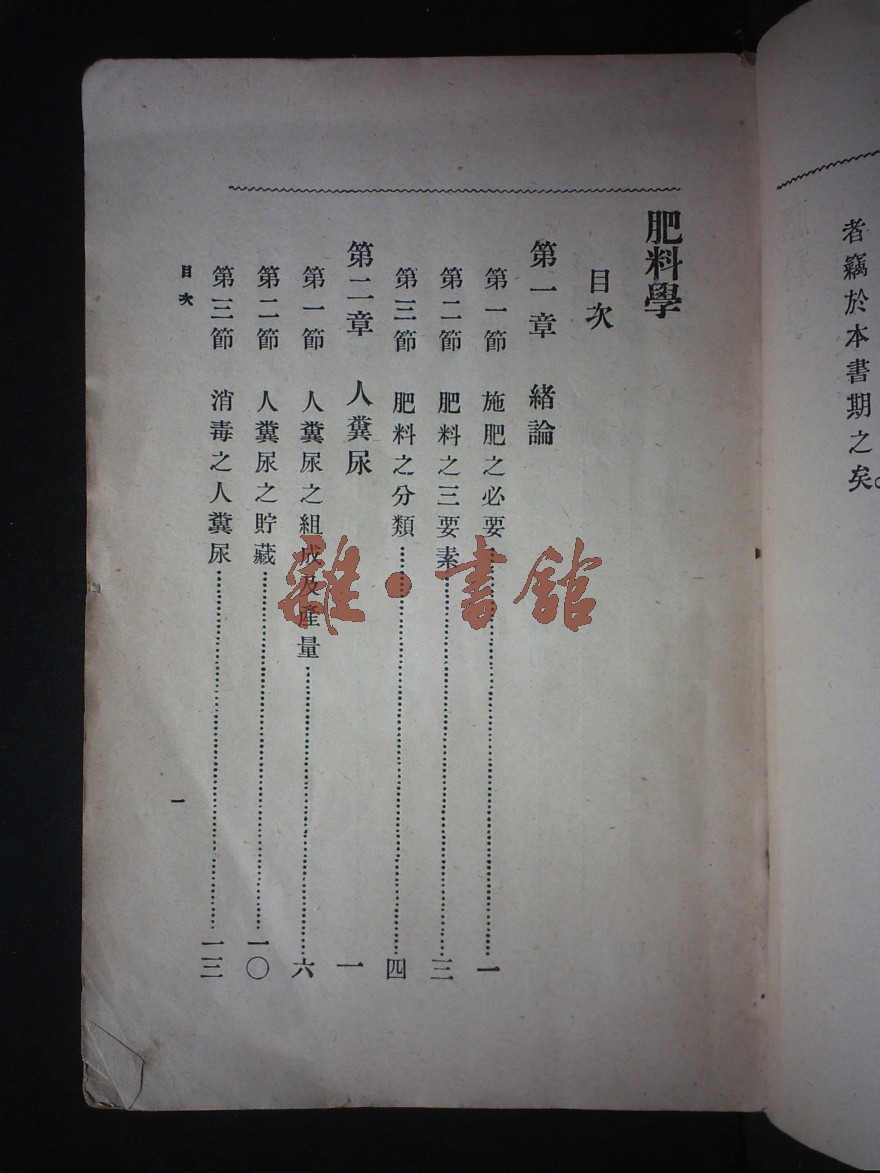 者竊於本書期之矣。
肥料學
目次
第一章 緒論
第一節 施肥之必要……一
第二節 肥料之三要素……三
第三節 肥料之分類……四
第二章 人糞尿 一
第一節 人糞尿之組成及產量……六
第二節 人糞尿之貯藏……一〇
第三節 消毒之人糞尿……一三
目次
一
雜·書館